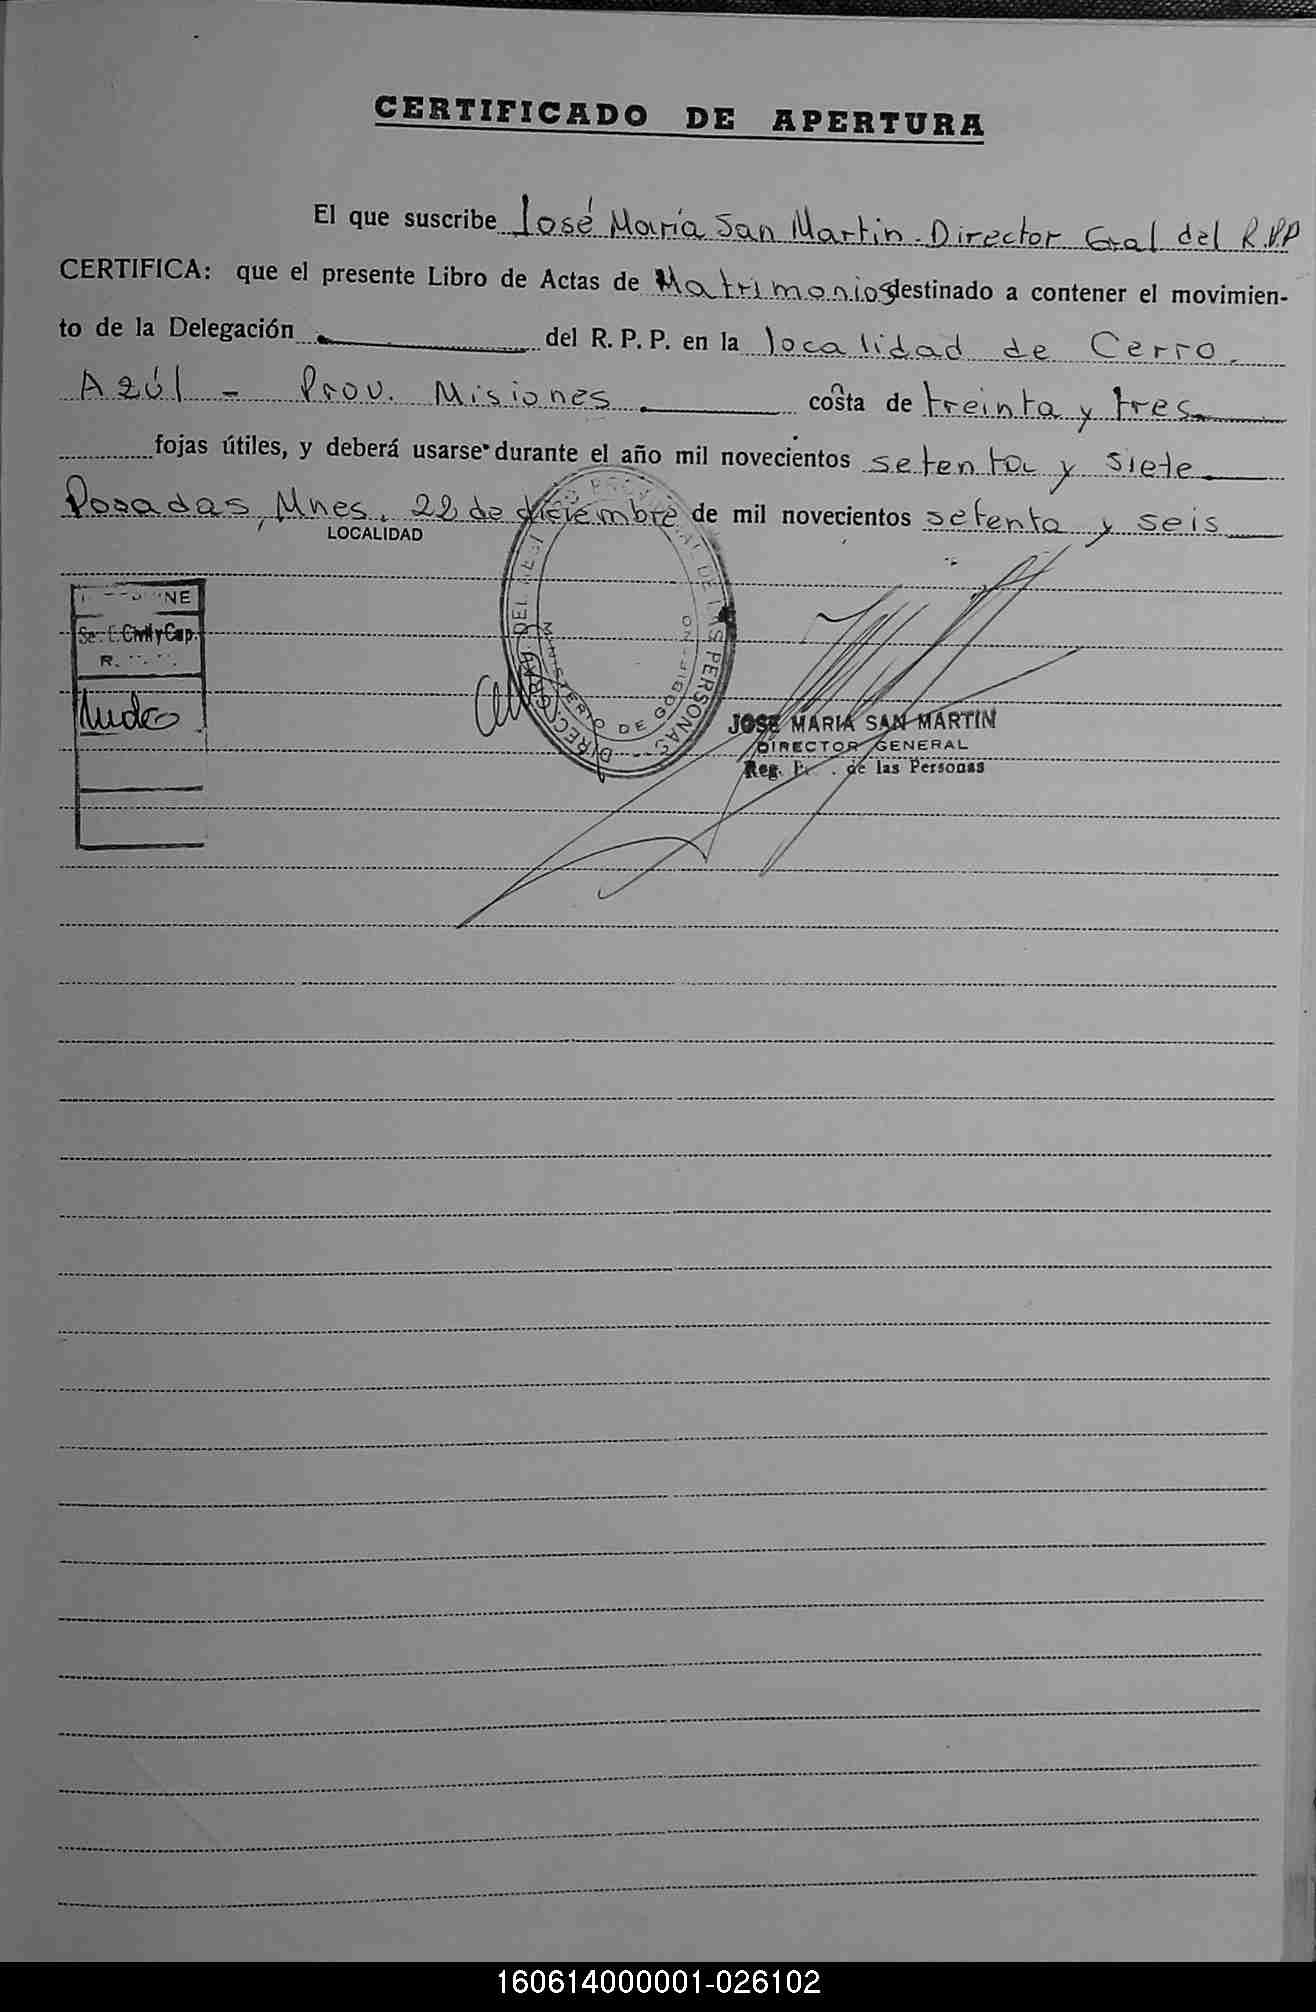 CERTIFICADO DE APERTURA
El que suscribe José María San Martin. Director Gral del R.P.P
CERTIFICA: que el presente Libro de Actas de Matrimonios destinado a contener el movimien-
to de la Delegación del R. P. P. en la localidad de Cerro
Azúl - Prov. Misiones costa de treinta y tres
fojas útiles, y deberá usarse durante el año mil novecientos setenta y siete
Posadas, Mnes. 22 de diciembre de mil novecientos setenta y seis
LOCALIDAD
NE
Civil y Cap.
R.
DIRECC. GRAL. DEL REGISTRO PROVINCIAL DE LAS PERSONAS
MINISTERIO DE GOBIERNO
JOSE MARIA SAN MARTIN
DIRECTOR GENERAL
Reg. de las Personas
160614000001-026102